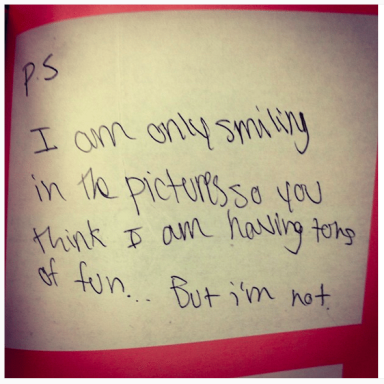 P.S
I am only smiling
in the pictures so you
think I am having tons
of fun... But i'm not